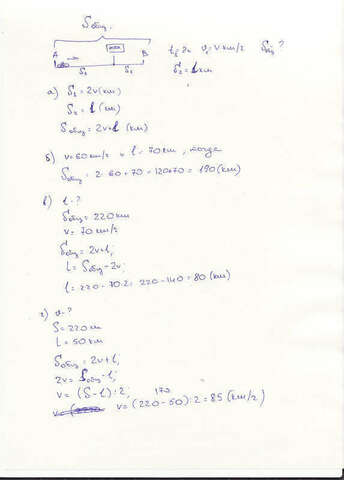 Sобщ.
A B
t₁ = 2ч v₁ = v км/ч Sобщ ?
S₂ = l км
S₁ S₂
а) S₁ = 2v (км)
S₂ = l (км)
Sобщ = 2v+l (км)
б) v=60 км/ч и l = 70 км, тогда
Sобщ = 2·60+70 = 120+70 = 190 (км)
в) l - ?
Sобщ = 220 км
v = 70 км/ч
Sобщ = 2v+l;
l = Sобщ - 2v;
l = 220 - 70·2 = 220 - 140 = 80 (км)
г) v - ?
S = 220 км
l = 50 км
Sобщ = 2v+l;
2v = Sобщ - l;
v = (S - l) : 2;
170
v = (220 - 50) : 2 = 85 (км/ч)